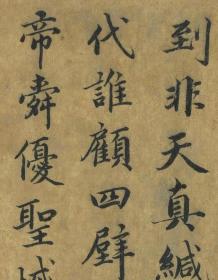 到非天真緘
代誰顧四壁
帝舜優聖